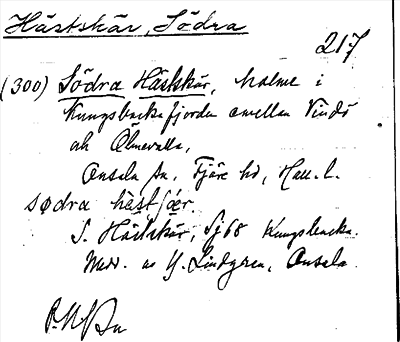 Hästskär, Södra
217
(300) Södra Hästskär, holme i
Kungsbackafjorden mellan Vindö
och Ölmevalla,
Onsala sn, Fjäre hd, Hall. l.
södra hàstʃǽr.
S. Hästskär, Sj 68 Kungsbacka.
Medd. av Y. Lindgren, Onsala.